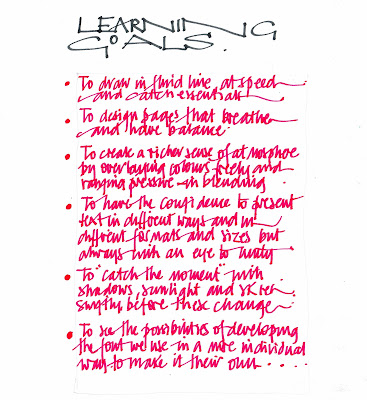 LEARNING
GOALS.
• To draw in fluid line, at speed
and catch essentials
• To design pages that breathe
and have balance.
• To create a richer sense of atmosphere
by overlaying colours freely and
varying pressure in blending.
• To have the confidence to present
text in different ways and in
different formats and sizes but
always with an eye to unity
• To "catch the moment" with
shadows, sunlight and
before these change.
• To see the possibilities of developing
the font we use in a more individual
way to make it their own....